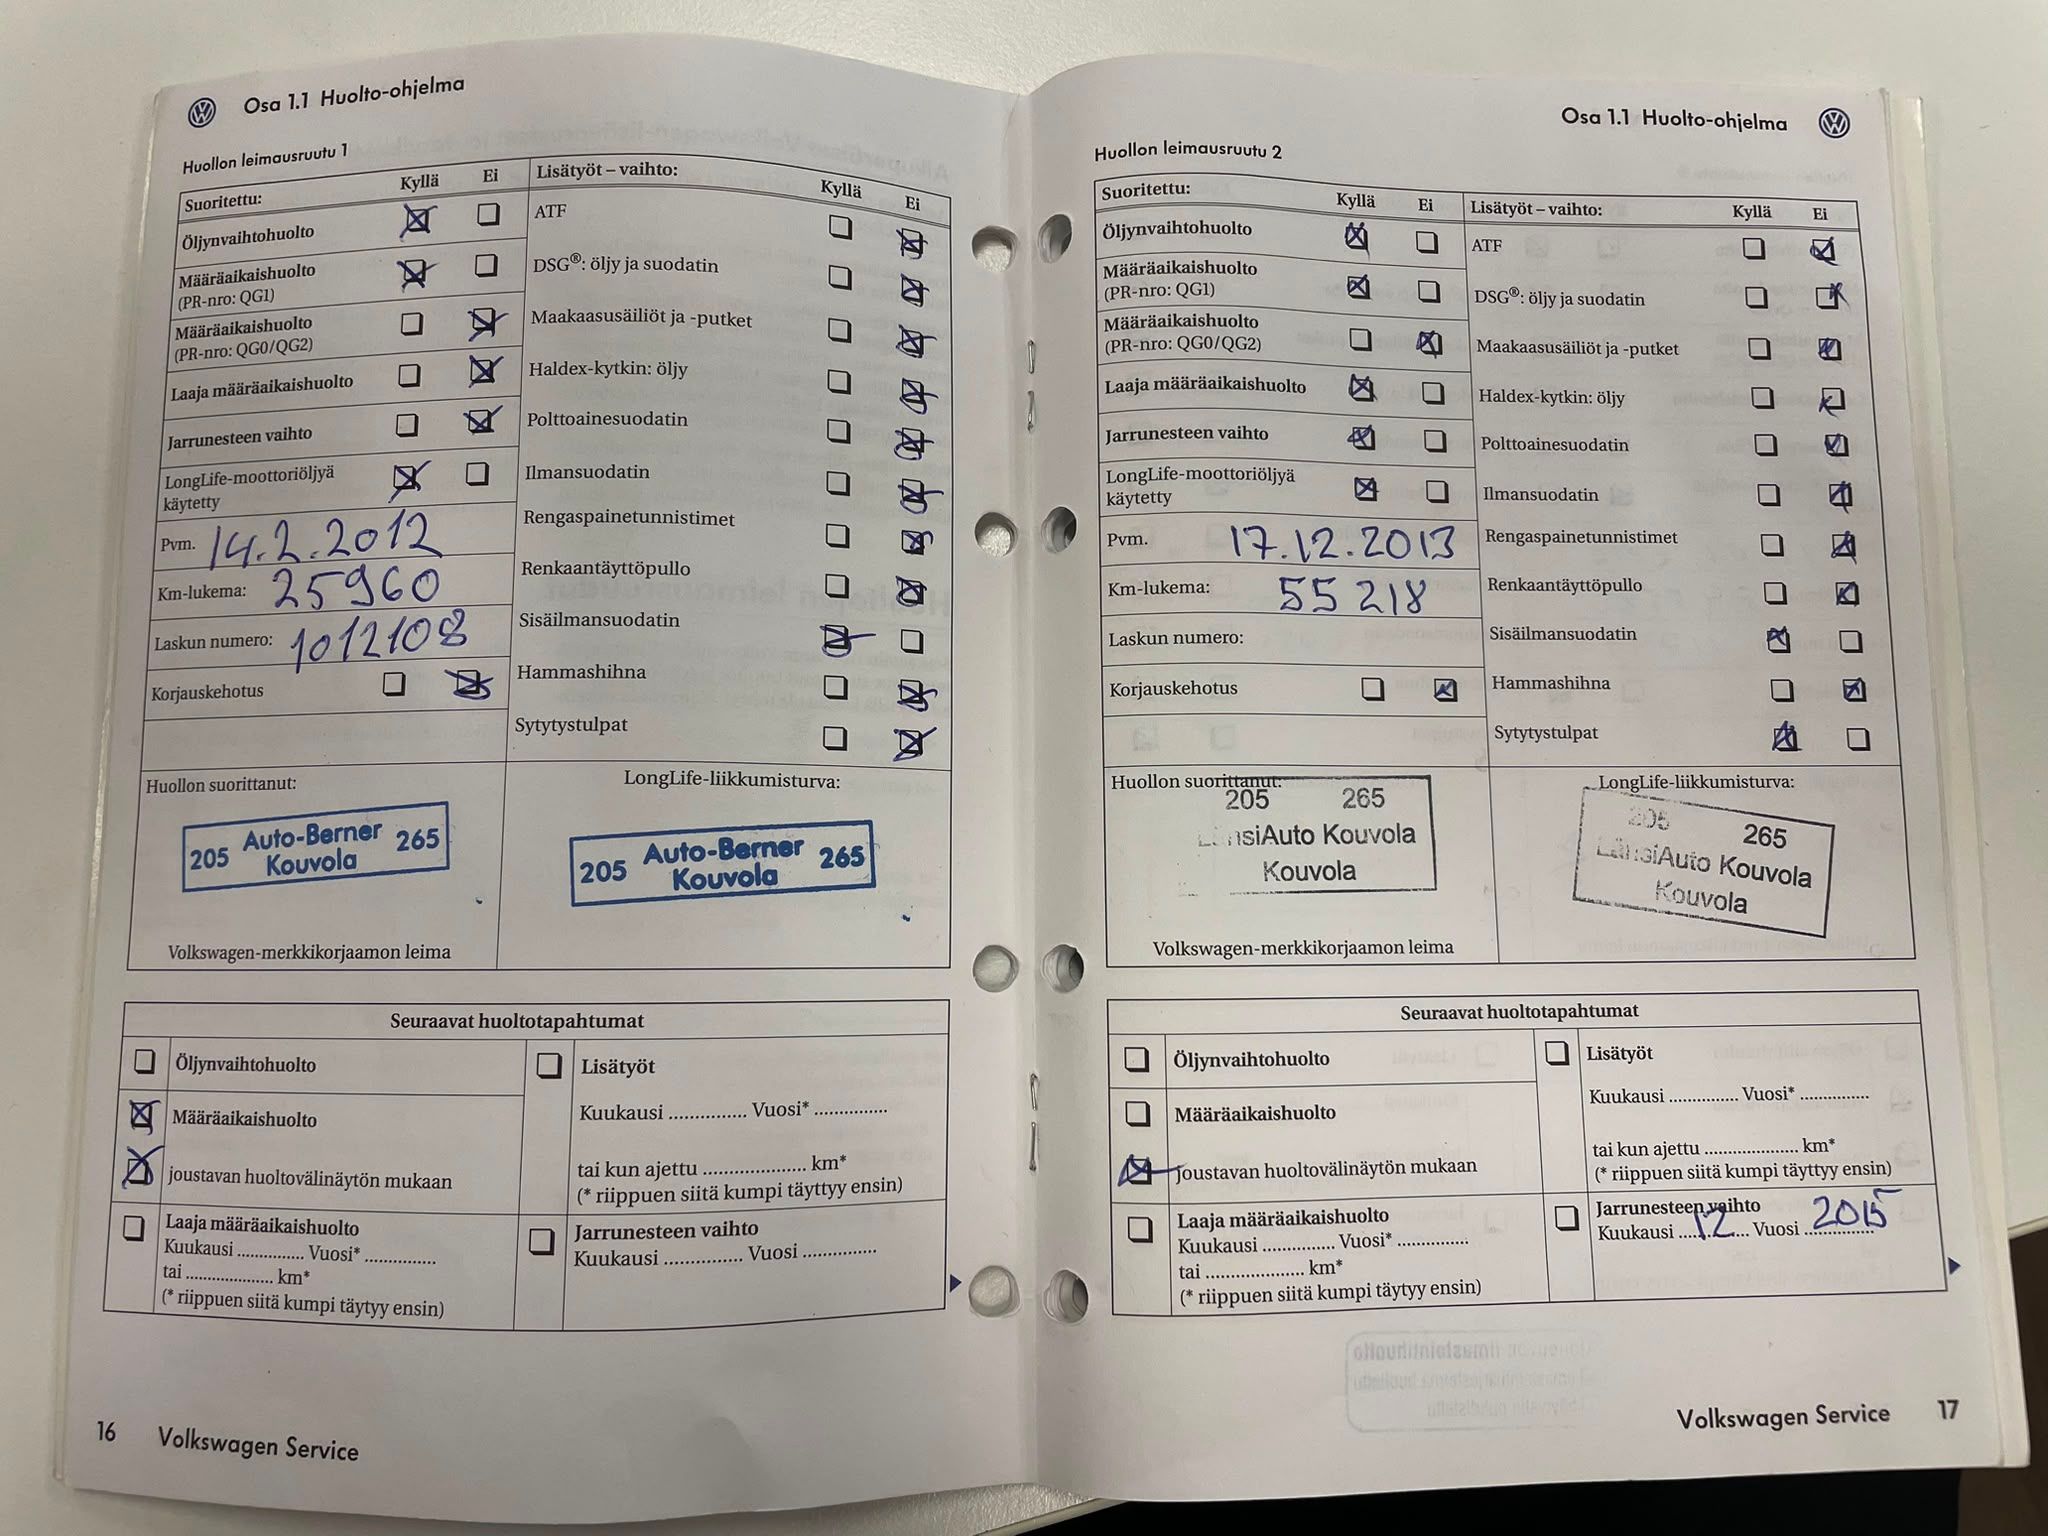 Osa 1.1 Huolto-ohjelma
Huollon leimausruutu 1
Suoritettu:
Kyllä
Ei
Öljynvaihtohuolto
Määräaikaishuolto
(PR-nro: QG1)
Määräaikaishuolto
(PR-nro: QG0/QG2)
Laaja määräaikaishuolto
Jarrunesteen vaihto
LongLife-moottoriöljyä
käytetty
Pvm. 14.2.2012
Km-lukema: 25960
Laskun numero: 1012108
Korjauskehotus
Lisätyöt – vaihto:
Kyllä
Ei
ATF
DSG®: öljy ja suodatin
Maakaasusäiliöt ja -putket
Haldex-kytkin: öljy
Polttoainesuodatin
Ilmansuodatin
Rengaspainetunnistimet
Renkaantäyttöpullo
Sisäilmansuodatin
Hammashihna
Sytytystulpat
Huollon suorittanut:
205 Auto-Berner 265
Kouvola
Volkswagen-merkkikorjaamon leima
LongLife-liikkumisturva:
205 Auto-Berner 265
Kouvola
Seuraavat huoltotapahtumat
Öljynvaihtohuolto
Määräaikaishuolto
joustavan huoltovälinäytön mukaan
Laaja määräaikaishuolto
Kuukausi .............. Vuosi* ...............
tai .................. km*
(* riippuen siitä kumpi täytyy ensin)
Lisätyöt
Kuukausi ................ Vuosi* ...............
tai kun ajettu ..................... km*
(* riippuen siitä kumpi täyttyy ensin)
Jarrunesteen vaihto
Kuukausi ................ Vuosi ...............
16 Volkswagen Service
Osa 1.1 Huolto-ohjelma
Huollon leimausruutu 2
Suoritettu:
Kyllä
Ei
Öljynvaihtohuolto
Määräaikaishuolto
(PR-nro: QG1)
Määräaikaishuolto
(PR-nro: QG0/QG2)
Laaja määräaikaishuolto
Jarrunesteen vaihto
LongLife-moottoriöljyä
käytetty
Pvm. 17.12.2013
Km-lukema: 55 218
Laskun numero:
Korjauskehotus
Lisätyöt – vaihto:
Kyllä
Ei
ATF
DSG®: öljy ja suodatin
Maakaasusäiliöt ja -putket
Haldex-kytkin: öljy
Polttoainesuodatin
Ilmansuodatin
Rengaspainetunnistimet
Renkaantäyttöpullo
Sisäilmansuodatin
Hammashihna
Sytytystulpat
Huollon suorittanut:
205 265
LänsiAuto Kouvola
Kouvola
Volkswagen-merkkikorjaamon leima
LongLife-liikkumisturva:
205 265
LänsiAuto Kouvola
Kouvola
Seuraavat huoltotapahtumat
Öljynvaihtohuolto
Määräaikaishuolto
joustavan huoltovälinäytön mukaan
Laaja määräaikaishuolto
Kuukausi ................ Vuosi* ...............
tai ..................... km*
(* riippuen siitä kumpi täytyy ensin)
Lisätyöt
Kuukausi ................ Vuosi* ...............
tai kun ajettu .................... km*
(* riippuen siitä kumpi täyttyy ensin)
Jarrunesteen vaihto
Kuukausi 12 Vuosi 2015
Volkswagen Service 17